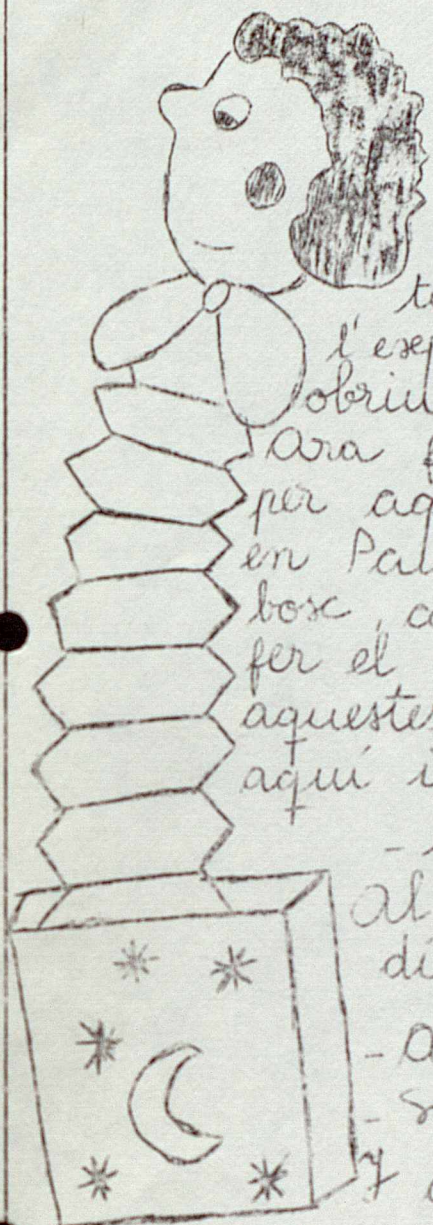 l'esp
obriu
Ara
per aq
en Pau
bosc, a
fer el
aqueste
aquí i
al
di
- a